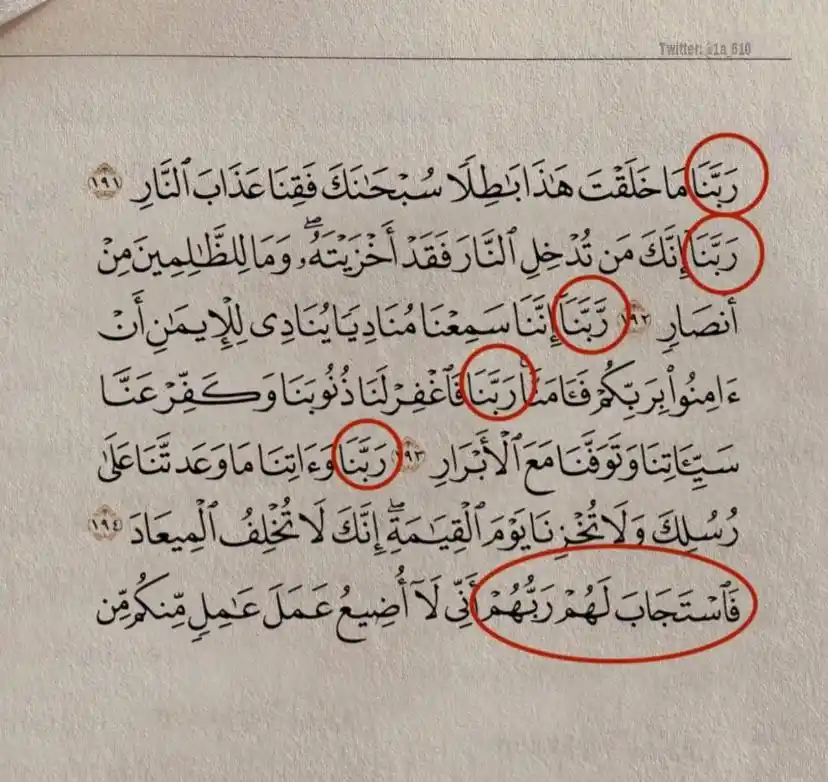 Twitter: @1a_610
رَبَّنَا مَا خَلَقْتَ هَٰذَا بَٰطِلًا سُبْحَٰنَكَ فَقِنَا عَذَابَ ٱلنَّارِ ١٩١
رَبَّنَآ إِنَّكَ مَن تُدْخِلِ ٱلنَّارَ فَقَدْ أَخْزَيْتَهُۥۖ وَمَا لِلظَّٰلِمِينَ مِنْ
أَنصَارٍ ١٩٢ رَّبَّنَآ إِنَّنَا سَمِعْنَا مُنَادِيًا يُنَادِى لِلْإِيمَٰنِ أَنْ
ءَامِنُوا۟ بِرَبِّكُمْ فَـَٔامَنَّاۚ رَبَّنَا فَٱغْفِرْ لَنَا ذُنُوبَنَا وَكَفِّرْ عَنَّا
سَيِّـَٔاتِنَا وَتَوَفَّنَا مَعَ ٱلْأَبْرَارِ ١٩٣ رَبَّنَا وَءَاتِنَا مَا وَعَدتَّنَا عَلَىٰ
رُسُلِكَ وَلَا تُخْزِنَا يَوْمَ ٱلْقِيَٰمَةِۖ إِنَّكَ لَا تُخْلِفُ ٱلْمِيعَادَ ١٩٤
فَٱسْتَجَابَ لَهُمْ رَبُّهُمْ أَنِّى لَآ أُضِيعُ عَمَلَ عَٰمِلٍ مِّنكُم مِّن